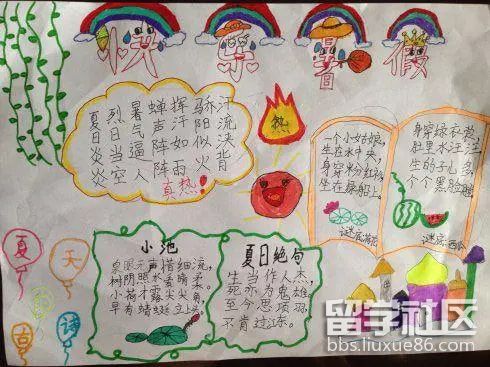 快樂暑假
夏日炎炎
烈日当空
暑气逼人
蝉声阵阵
挥汗如雨
骄阳似火
汗流浃背
真热!
热
一个小姑娘,
生在水中央,
身穿粉红衫,
坐在绿船上。
谜底:荷花
身穿绿衣裳,
肚里水汪汪,
生的子儿多,
个个黑脸膛。
谜底:西瓜
夏天古诗
小池
泉眼无声惜细流,
树阴照水爱晴柔。
小荷才露尖尖角,
早有蜻蜓立上头。
夏日绝句
生当作人杰,
死亦为鬼雄。
至今思项羽,
不肯过江东。
留学社区
bbs.liuxue86.com